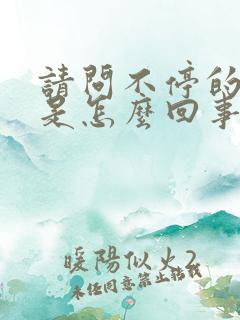 請問不停的
是怎麼回事
暖陽似火2
未经同意禁止转载